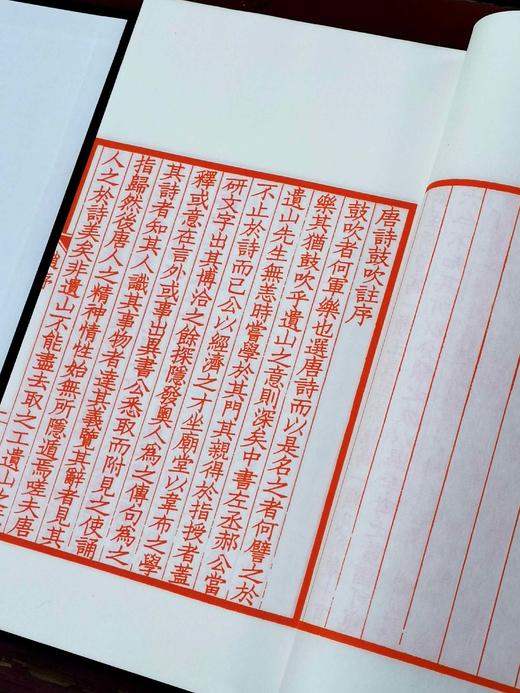 唐詩鼓吹註序
鼓吹者何軍樂也選唐詩而以是名之者何譬之於
樂其猶鼓吹乎遺山之意則深矣中書左丞郝公當
遺山先生無恙時嘗學於其門其親得於指授者蓋
不止於詩而已公以經濟之才坐廟堂以韋布之學
研文字出其博洽之餘探隱發奧人為之傳句為之
釋或意在言外或事出異書公悉取而附見之使誦
其詩者知其人識其事物者達其義覽其辭者見其
指歸然後唐人之精神情性始無所隱遁焉嗟夫唐
人之於詩美矣非遺山不能盡去取之工遺山之